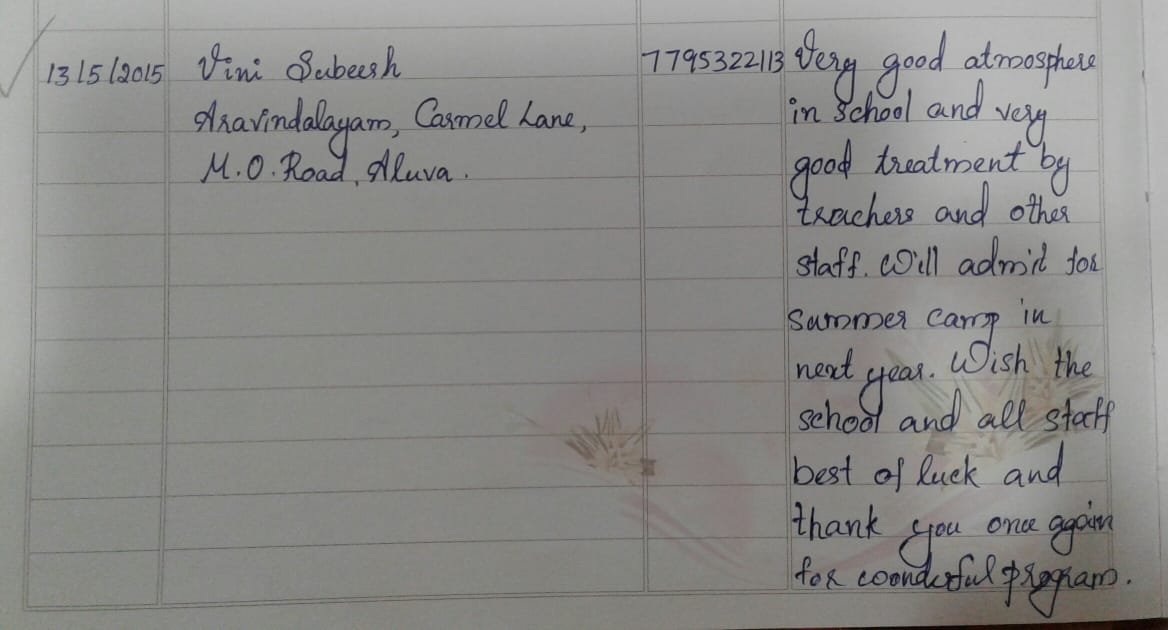 13/5/2015 Vini Subeesh 7795322113 Very good atmosphere
Aravindalayam, Carmel Lane, in School and very
M.O. Road, Aluva. good treatment by
teachers and other
staff. Will admit for
summer camp in
next year. Wish the
school and all staff
best of luck and
thank you once again
for wonderful program.